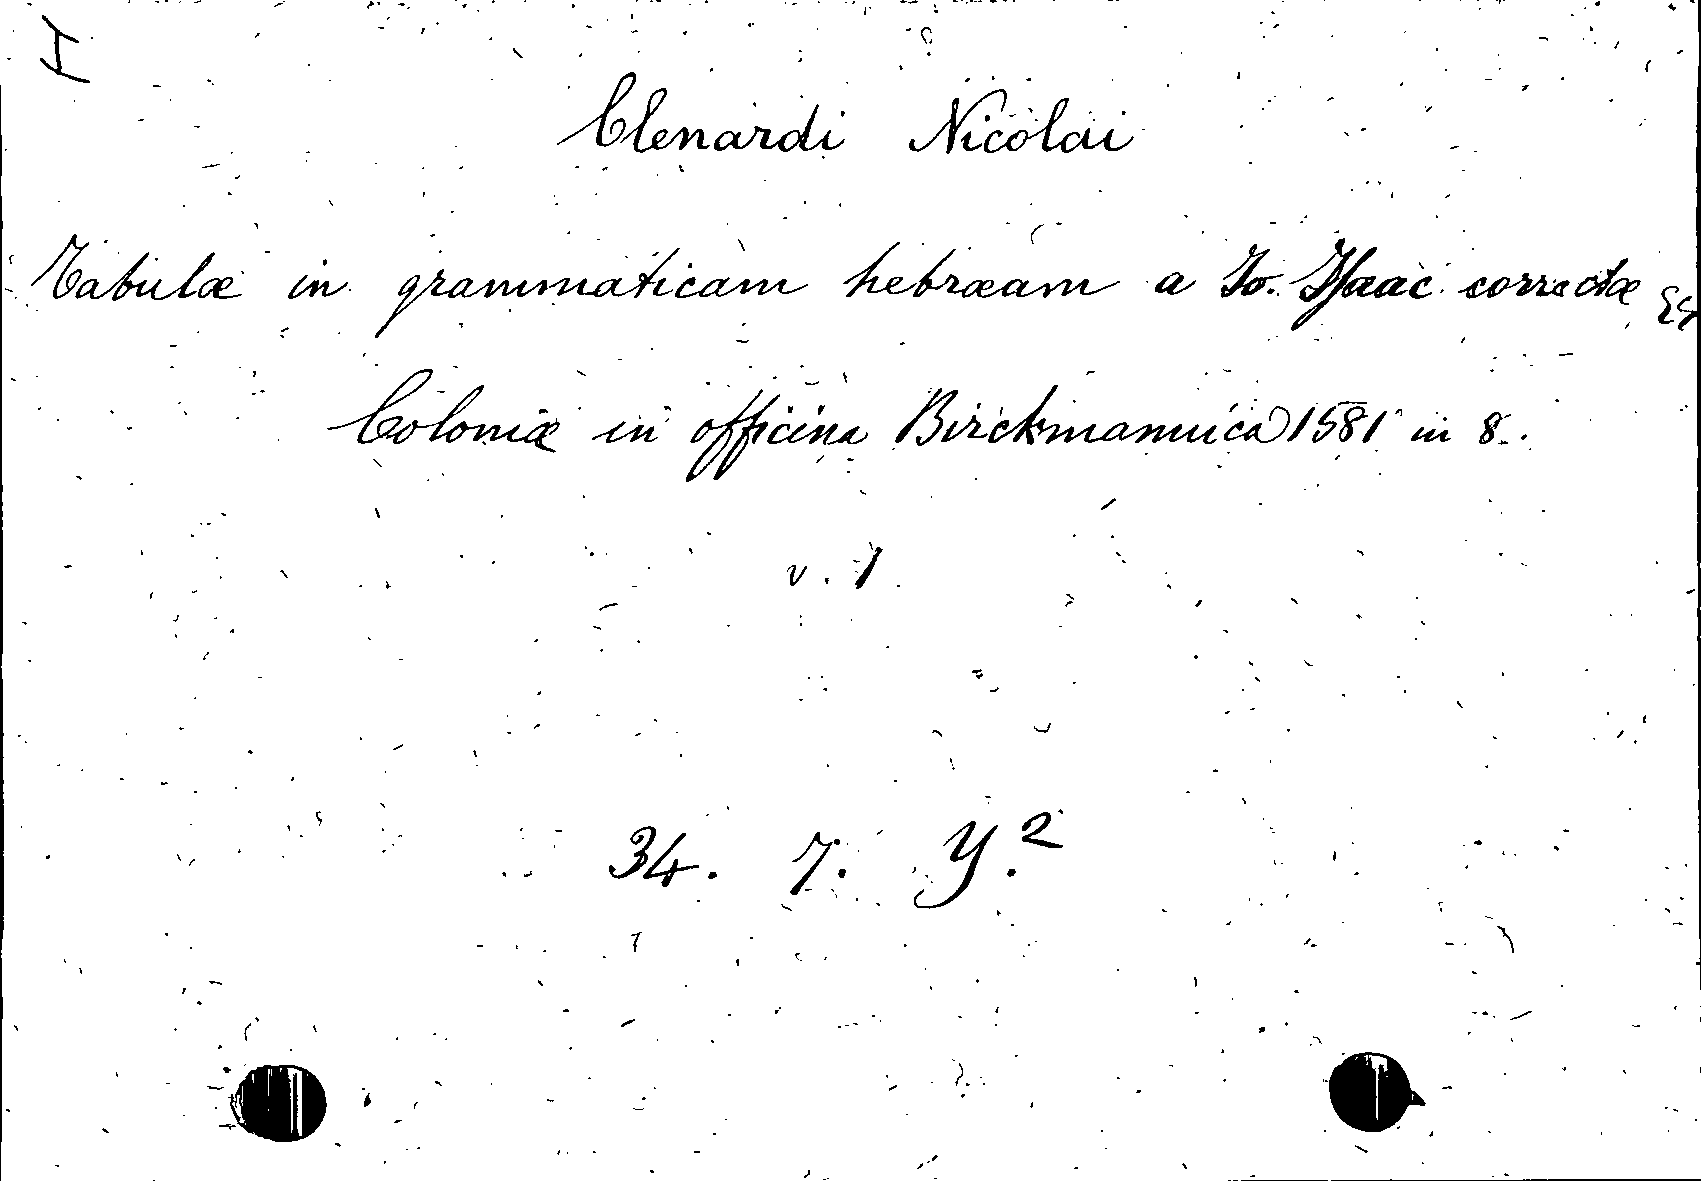 I
Clenardi Nicolai
Tabulæ in grammaticam hebræam a Jo. Isaac correctæ &
Coloniæ in officina Birckmannica 1581 in 8.
v. 1
34. 7. Y.²